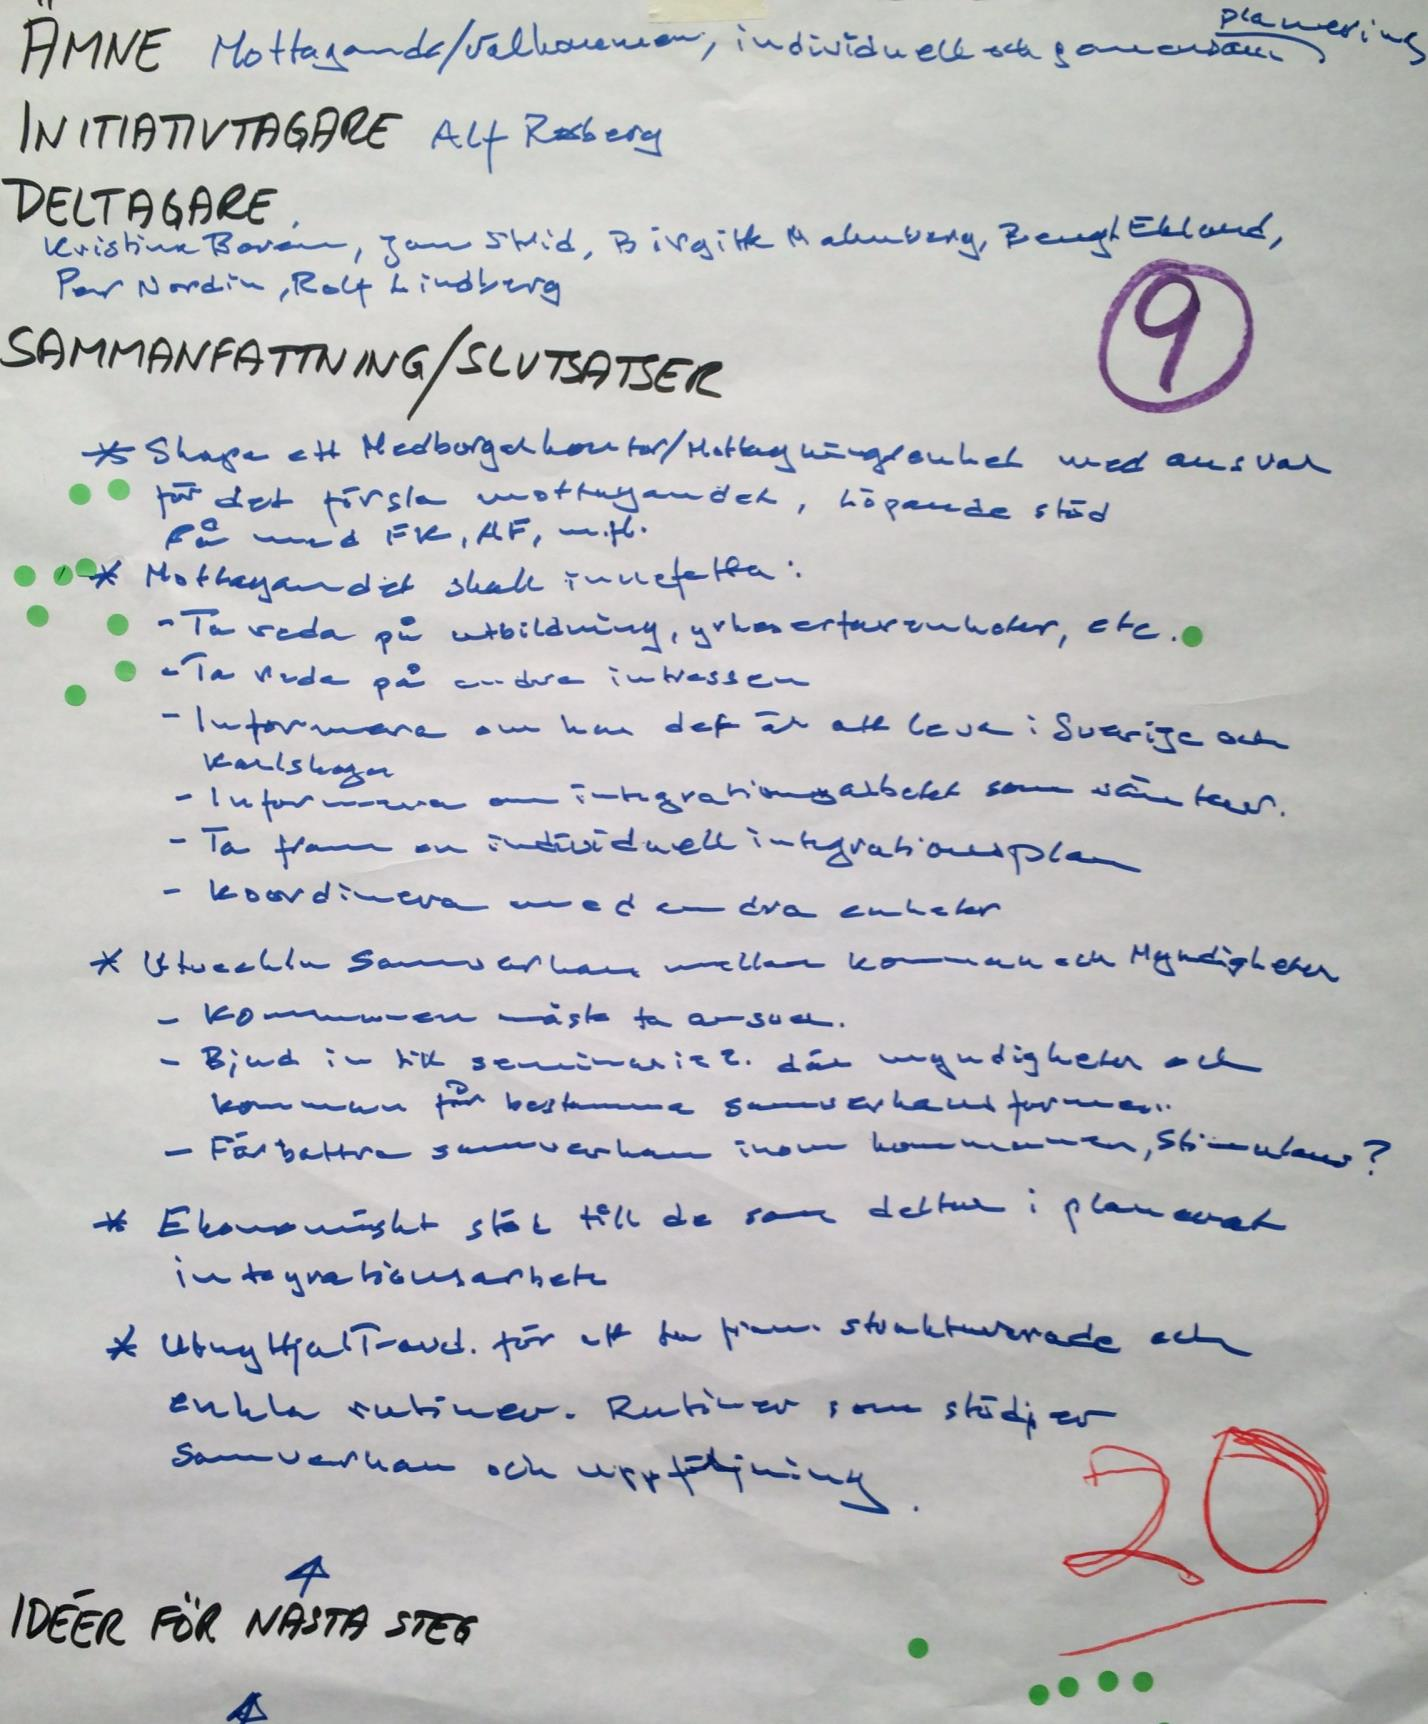 planering
ÄMNE Mottagande/välkommen, individuell och gemensam
INITIATIVTAGARE Alf Rosberg
DELTAGARE
Kristina Borén, Jan Skid, Birgitte Malmberg, Bengt Eklund,
Per Nordin, Rolf Lindberg
9
SAMMANFATTNING/SLUTSATSER
* Skapa ett Medborgarkontor/Mottagningsenhet med ansvar
för det första mottagandet, löpande stöd
på med FK, AF, m.fl.
* Mottagandet skall innefatta:
- Ta reda på utbildning, yrkeserfarenheter, etc.
- Ta reda på andra intressen
- Informera om hur det är att leva i Sverige och
Karlskoga
- Informera om integrationsarbetet som väntar.
- Ta fram en individuell integrationsplan
- Koordinera med andra enheter
* Utveckla samverkan mellan kommun och Myndigheter
- Kommunen måste ta ansvar.
- Bjud in till seminarie där myndigheter och
kommun får bestämma samverkansformer.
- Förbättra samverkan inom kommunen, Stimulans?
* Ekonomiskt stöd till de som deltar i planerat
integrationsarbete
* Utnyttja IT-avd. för att ta fram strukturerade och
enkla rutiner. Rutiner som stödjer
samverkan och uppföljning.
20
IDÉER FÖR NÄSTA STEG